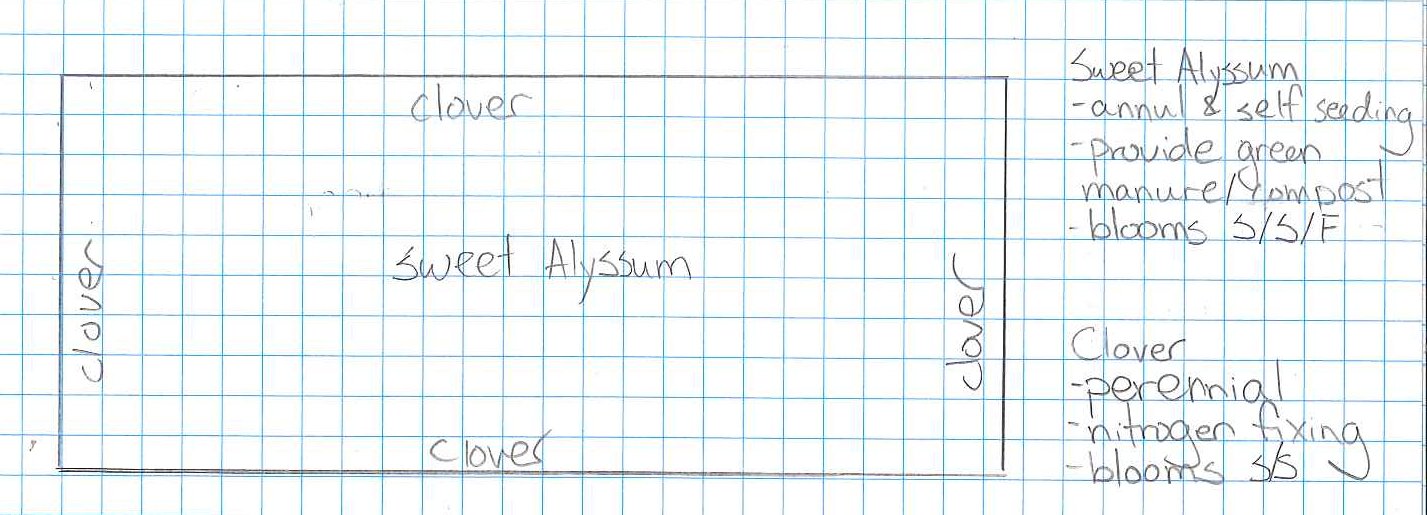 clover
Sweet Alyssum
clover
clover
clover
Sweet Alyssum
-annul & self seeding
-provide green
manure/compost
-blooms S/S/F
Clover
-perennial
-nitrogen fixing
-blooms S/S